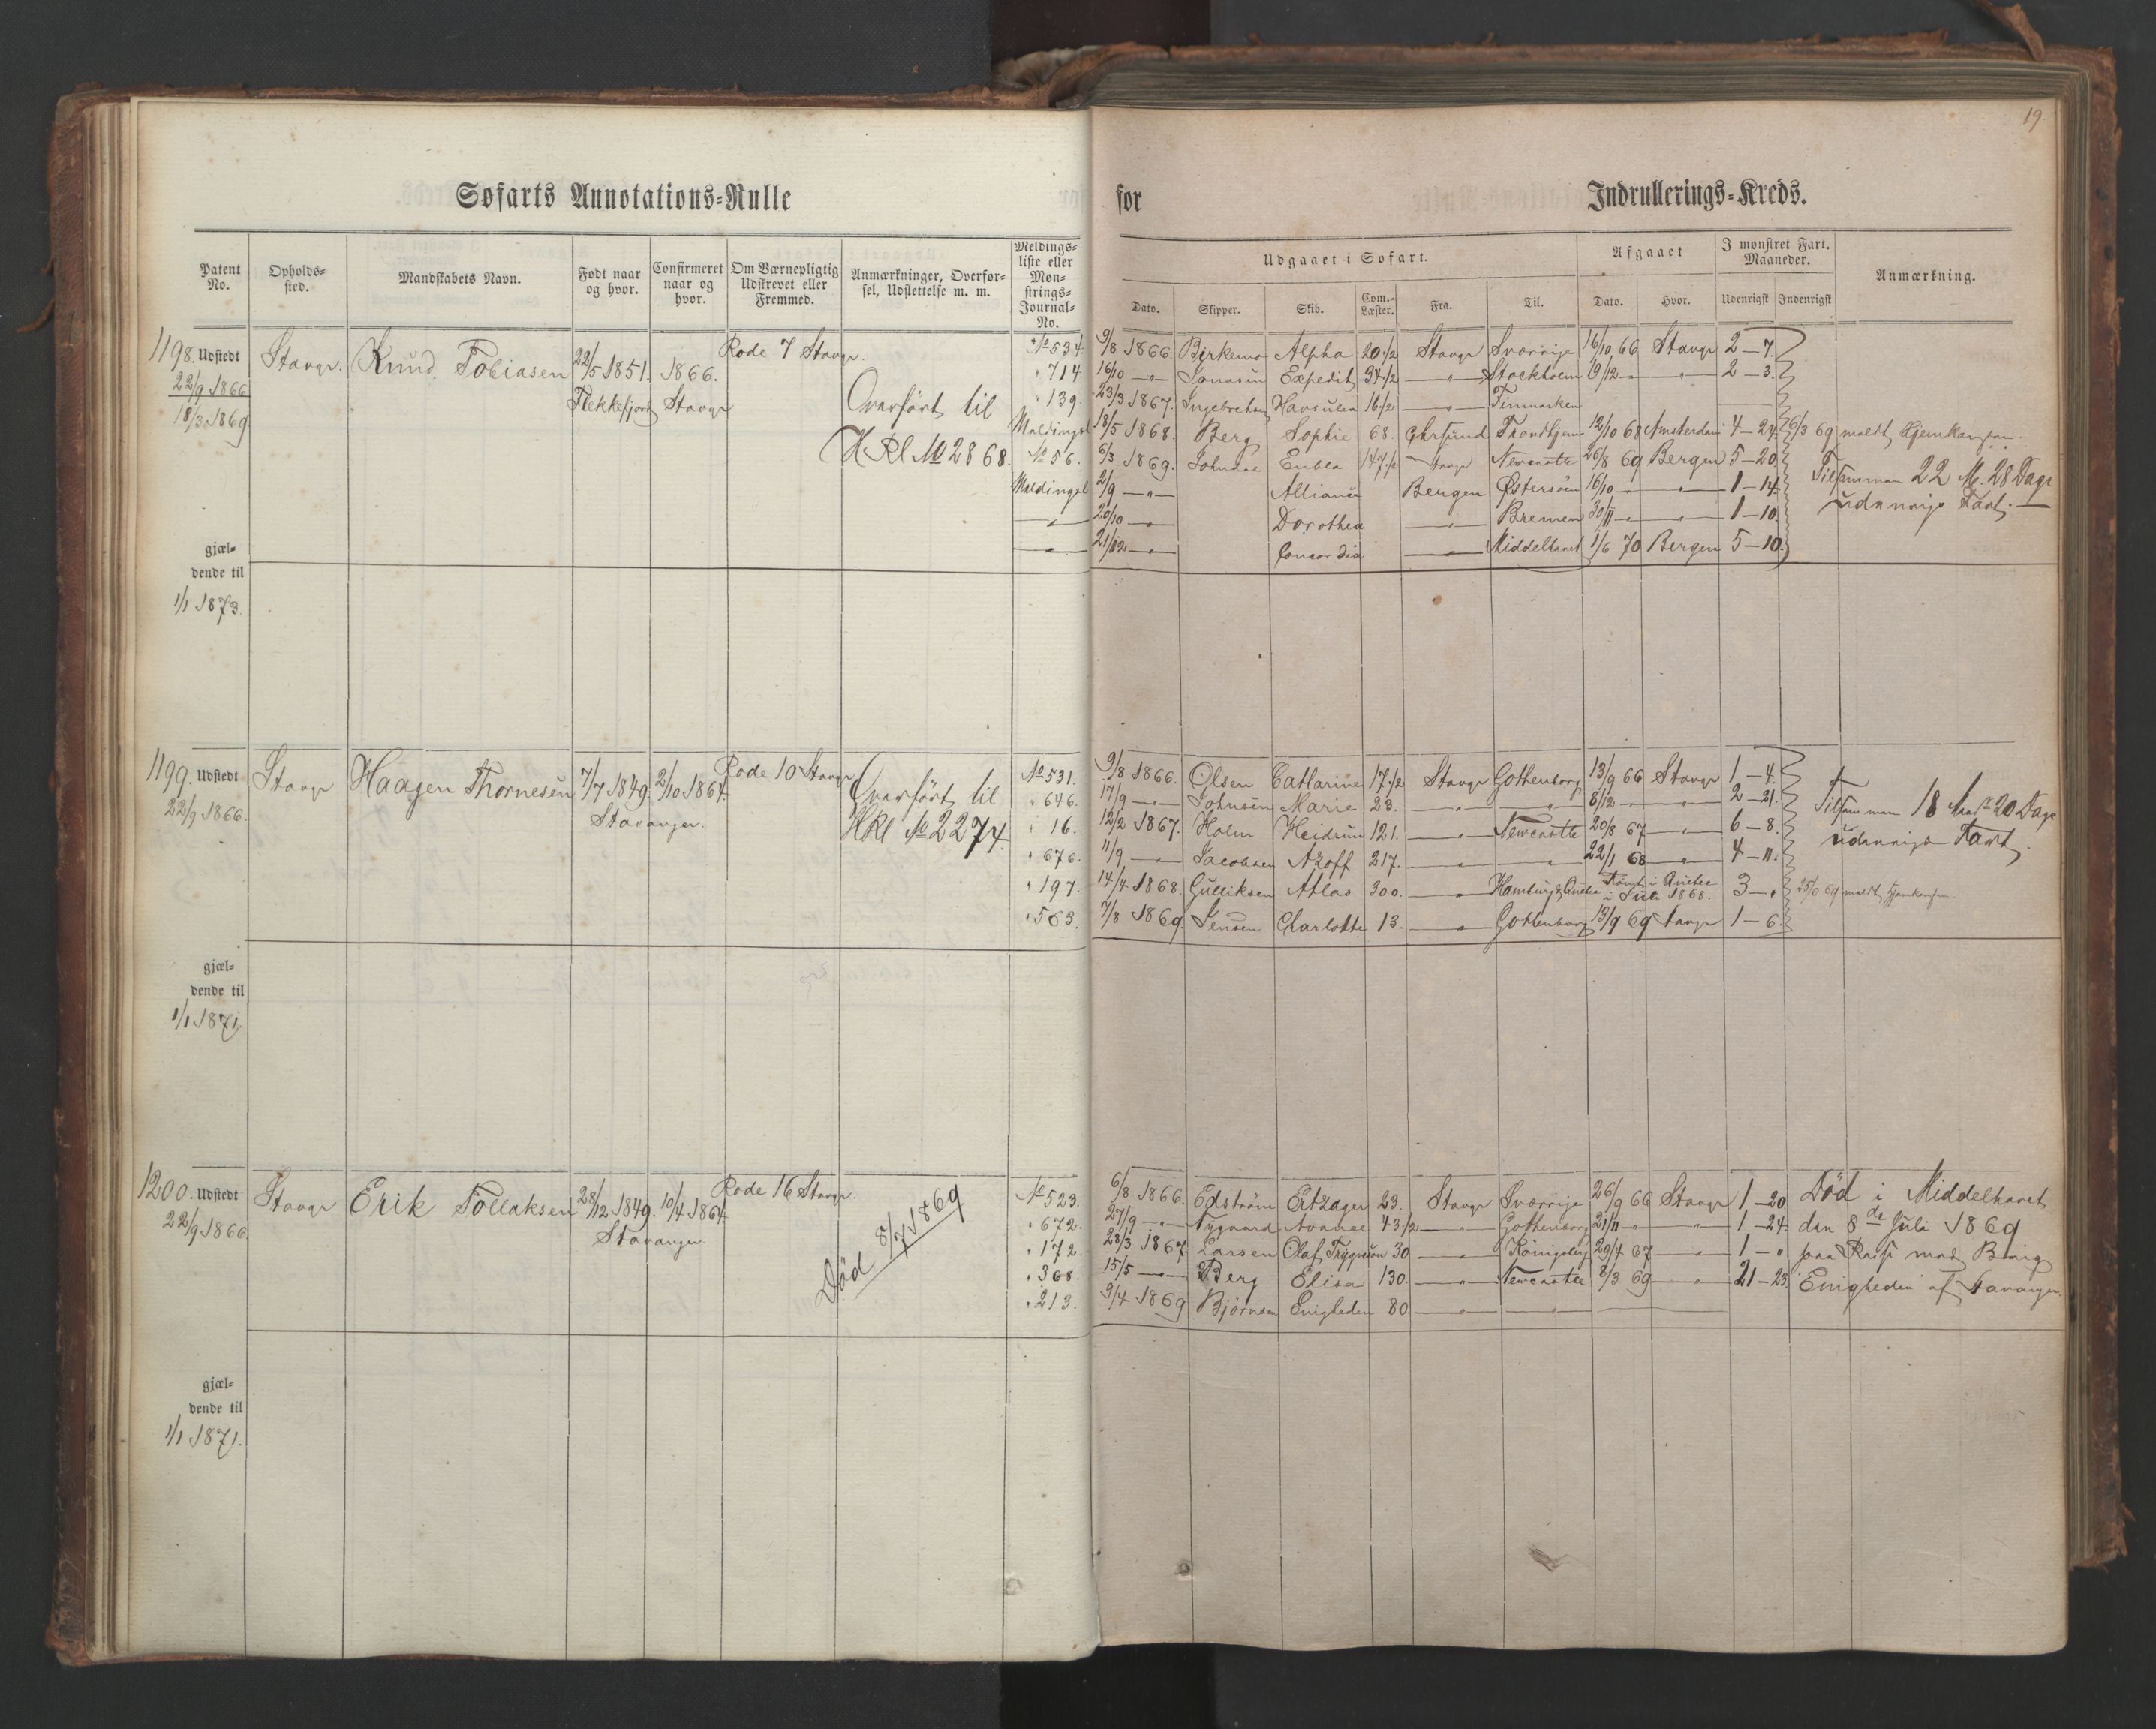 19
Søfarts Annotations-Rulle for Indrullerings-Kreds.
Patent No. Opholds-sted. Mandskabets Navn. Født naar og hvor. Confirmeret naar og hvor. Om Værnepligtig Udskrevet eller Fremmed. Anmærkninger, Overførsel, Udslettelse m. m. Meldings-liste eller Mønstrings-Journal-No.
Udgaaet i Søfart. Afgaaet I mønstret Fart. Maaneder. Anmærkning.
Dato. Skipper. Skib. Com.-Læster. Fra. Til. Dato. Hvor. Udenrigsk Indenrigsk
1198. Udstedt 22/9 1866 18/3 1869 Stavgr. Knud Tobiasen 22/5 1851. 1866. Rode 7 Stavgr.
Flekkefjord Stavgr
Overført til
HRl No 2868.
gjæl-
dende til
1/1 1873.
No 534 9/8 1866. Birkemo Alpha 20 1/2 Stavgr Sverrige 16/10 66 Stavgr 2-7.
" 714 16/10 —"— Jonasen Expedit 34 1/2 —"— Stockholm 19/12 —"— " 2-3.
" 139. 23/3 1867. Ingebretsen 16 1/2 —"— Finmarken
Meldingsl 18/5 1868. Berg Sophie 68. Trondhjem 12/10 68 Amsterdam 4-24. 6/3 69 meldt Hjemkommen.
No 56. 6/3 1869. 147 1/2 Stavgr Newcastle 26/8 69 Bergen 5-20
Meldingsl 2/9 —"— Alliance Bergen Østersøen 16/10 —"— " 1-14
—"— 20/10 —"— Dorothea —"— Bremen 30/11 —"— " 1-10.
—"— 21/12 —"— Concordia —"— Middelhavet 1/6 70 Bergen 5-10.
Tilsammen 22 M. 28 Dage
udenrigs Fart.—
1199. Udstedt 22/9 1866. Stavgr Haagen Thornesen 7/7 1849. 2/10 1864. Rode 10 Stavgr
Stavanger.
Overført til
HRl No 2274.
gjæl-
dende til
1/1 1871.
No 531. 9/8 1866. Olsen Cathrine 17 1/2 Stavgr Gothenborg 13/9 66 Stavgr 1-4.
" 646. 17/9 —"— Johnsen Marie 23. —"— —"— 8/12 —"— " 2-21.
" 16. 12/2 1867. Holm Heidrun 121. —"— Newcastle 20/8 67 —"— 6-8.
" 676. 11/9 —"— Jacobsen Azoff 217. —"— —"— 22/1 68 —"— 4-11.
" 197. 14/4 1868. Gulliksen Atlas 300. —"— Hamburg & Quebec Rømt i Quebec i Juli 1868. 3-" meldt Hjemkommen
" 563. 7/8 1869. Jensen Charlotte 13. —"— Gothenborg 13/9 69 Stavgr 1-6.
Tilsammen 18 20 Dage
udenrigs Fart
1200. Udstedt 22/9 1866. Stavgr Erik Tollaksen 28/12 1849. 10/4 1864. Rode 16 Stavgr.
Stavanger
Død 8/7 1869
gjæl-
dende til
1/1 1871.
No 523. 6/8 1866. Edström 23. Stavgr Sverrige 26/9 66 Stavgr 1-20
" 672. 27/9 —"— Nygaard Avance 43 1/2 —"— Gothenborg 21/11 —"— " 1-24.
" 172. 28/3 1867. Larsen Olaf Trygvesøn 30 —"— Königsberg 29/4 67 —"— 1-"
" 368. 15/5 —"— Berg Elisa 130. —"— Newcastle 8/3 69 —"— 21-23.
" 213. 9/4 1869 Björnsen Enigheden 80 —"— —"—
Död i Middelhavet
den 8de Juli 1869
paa Reise med Brig
"Enigheden" af Stavanger.